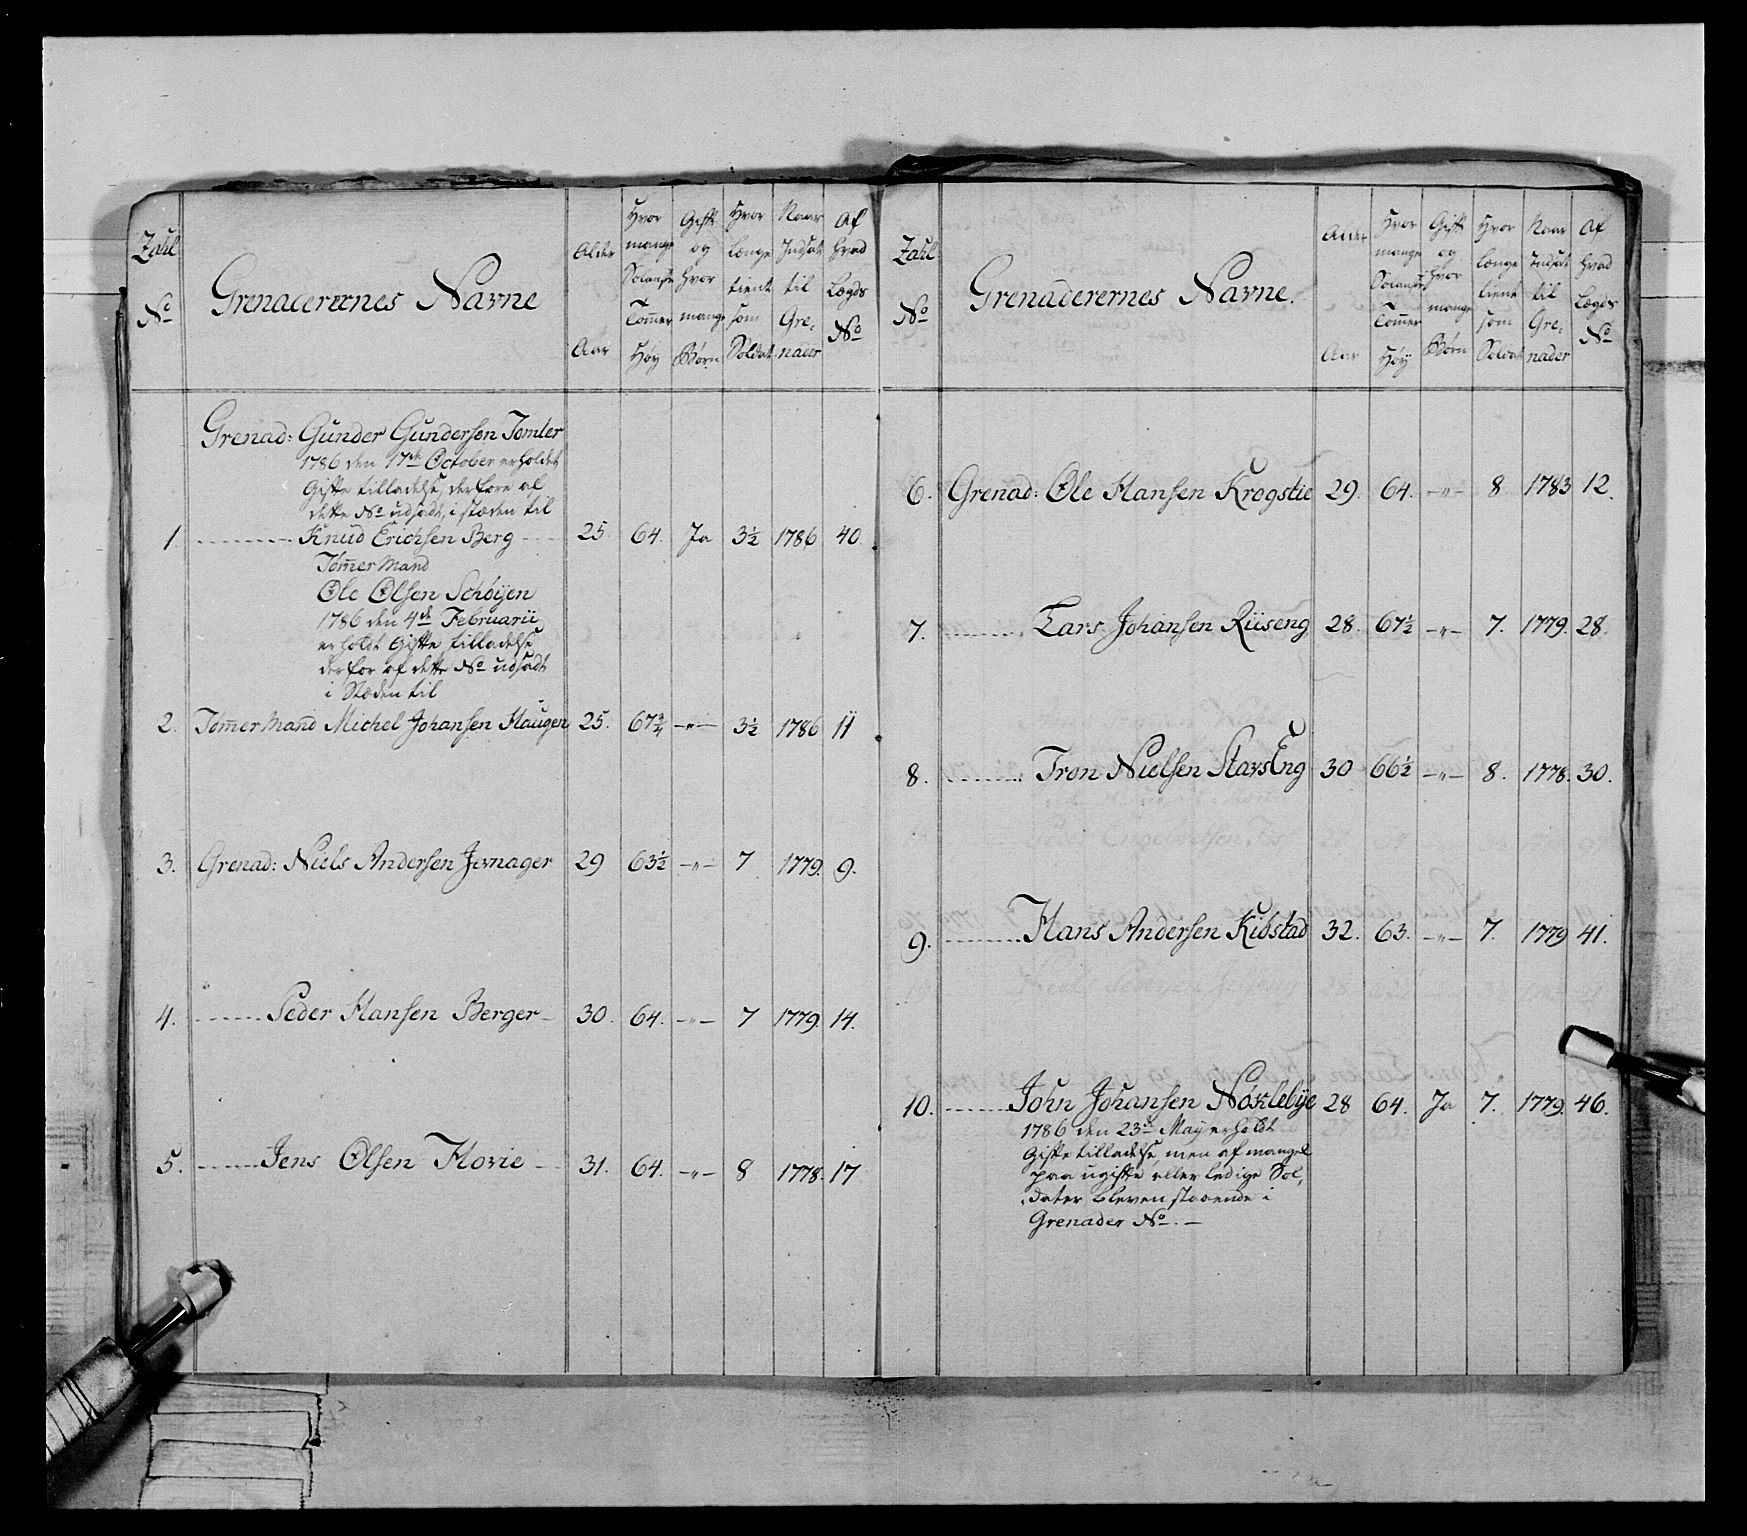 Zahl
No
Grenaderernes Navne
Alder
Aar
Hvor
mange
Solanske
Tom̄er
Høy
Gift
og
hvor
mange
Børn
Hvor
Længe
tient
som
Soldat
Naar
Indsat
til
Gre-
nader
Af
hvad
Lægds
No
Grenad: Gunder Gundersen Tomter
1786 den 17de October erholdet
Gifte tilladelse, derfore af
dette No udsadt, i stæden til
1. Knud Erichsen Berg 25. 64. Ja 3½ 1786 40.
Tøm̄ermand
Ole Olsen Schøyen
1786 den 4de Februarii
erholdt Gifte tilladelse
derfor af dette No udsadt
i Stæden til
2. Tøm̄ermand Michel Johansen Haugen 25. 67¾ -"- 3½ 1786 11
3. Grenad: Niels Andersen Jernager 29 63½ -"- 7 1779. 9.
4. Peder Hansen Berger 30. 64. -"- 7 1779. 14.
5. Jens Olsen Hovie 31. 64. -"- 8 1778. 17
Zahl
No
Grenaderernes Navne.
Alder
Aar
Hvor
mange
Solanske
Tom̄er
Høÿ
Gift
og
hvor
mange
Børn
Hvor
længe
tient
som
Soldat
Naar
Indsat
til
Gre-
nader
Af
hvad
Lægds
No
6. Grenad: Ole Hansen Krogstie 29. 64. -"- 8 1783 12.
7. Lars Johansen Riiseng 28. 67½ -"- 7. 1779. 28.
8. Tron Nielsen StarsEng 30 66½ -"- 8. 1778. 30.
9. Hans Andersen Kibstad 32. 63. -"- 7. 1779 41.
10. John Johansen Nøklebÿe 28 64. Ja 7. 1779. 46.
1786 den 23de Maÿ erholdt
Gifte tilladelse, men af mangel
paa ugifte eller ledige Sol-
dater bleven staaende i
Grenader No. —